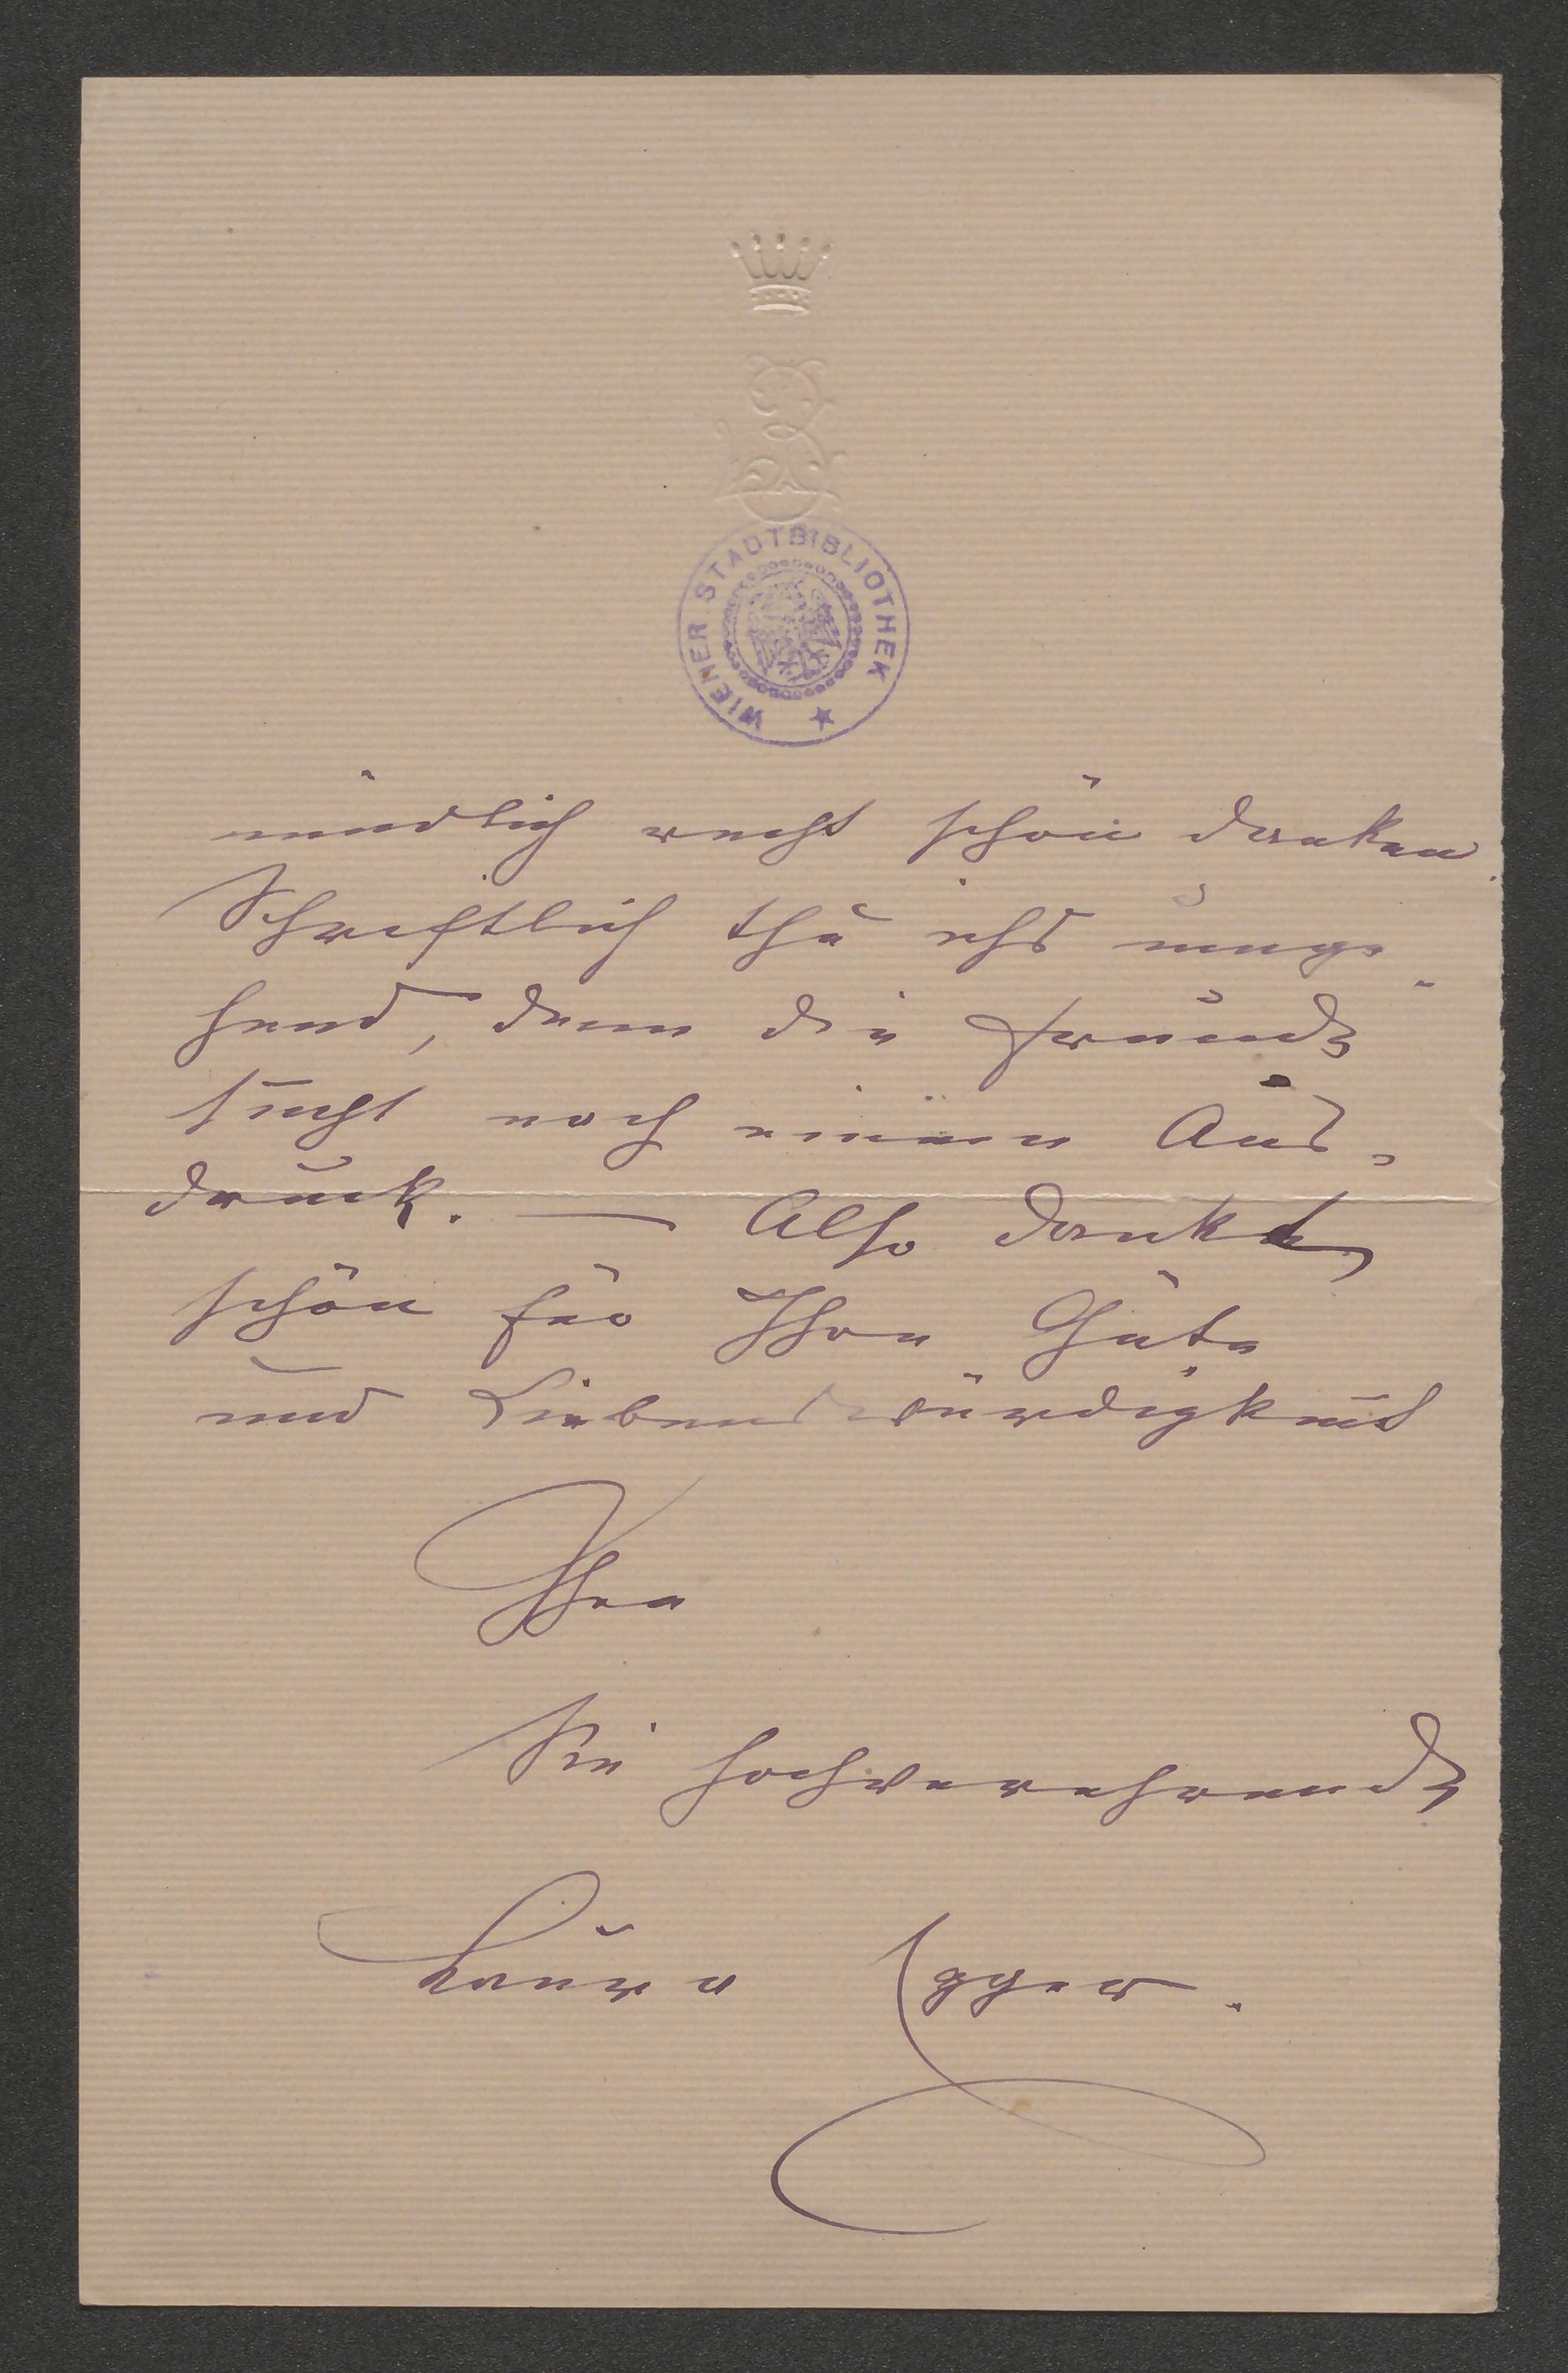 WIENER STADTBIBLIOTHEK
mündlich recht schön danken.
Schriftlich thu ichs umge-
hend, denn die Freude
sucht nach einem Aus-
druck. — Also danke
schön für Ihre Güte
und Liebenswürdigkeit
Ihre
Sie hochverehrende
Laura Egger.